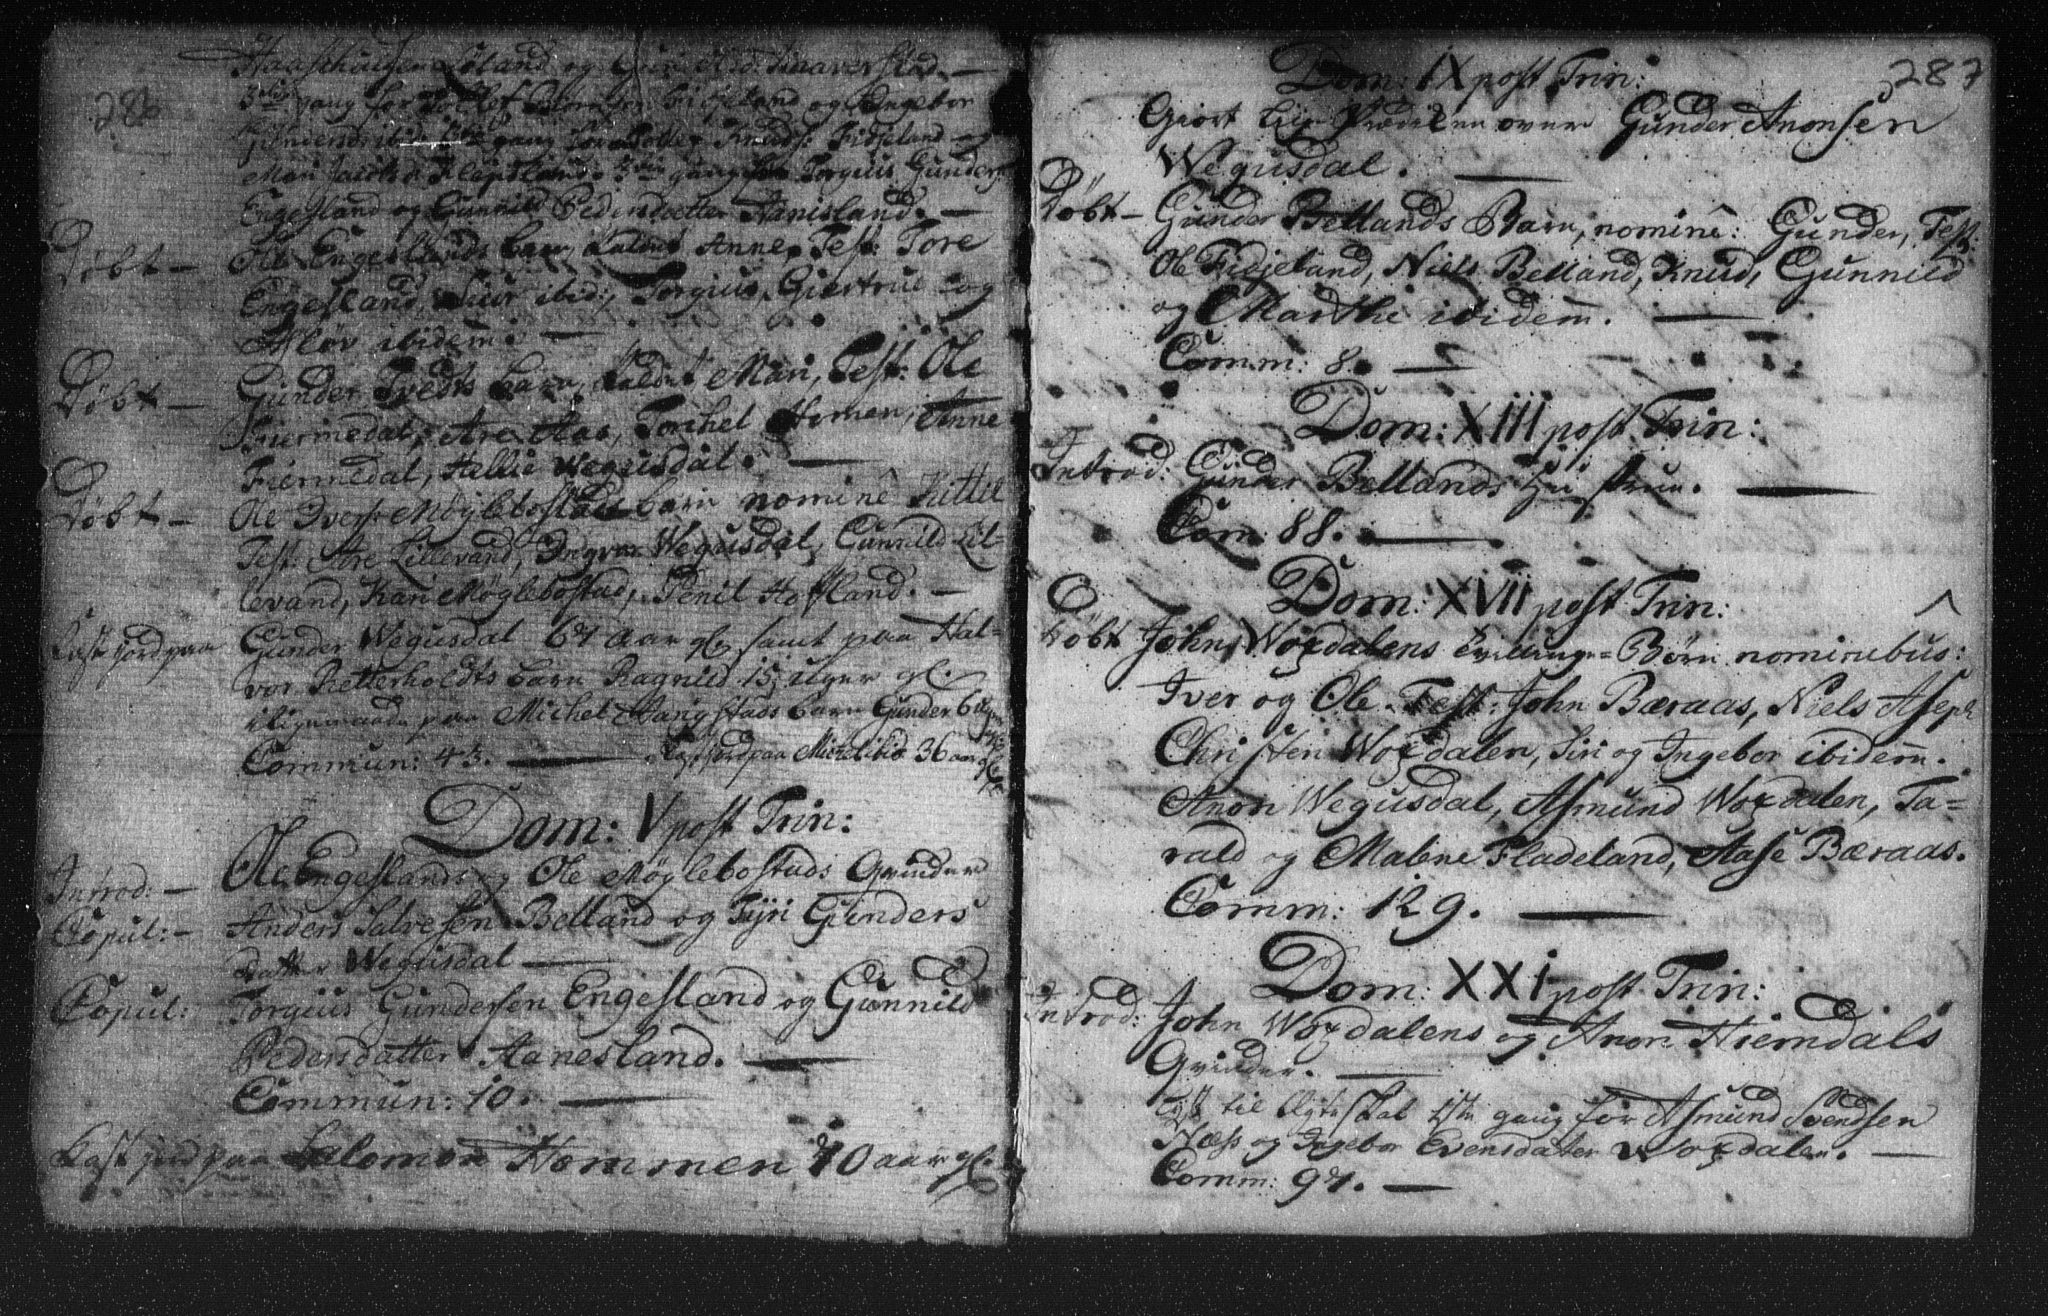 286
Søland og
3die gang for Tollef Fidjeland og Ingebor
Gundersd: ibid: gang for Salve Knuds: Fidjeland og
Mari Jacobsd: Klepsland. 3die gang for Torgius Gunders:
Engesland og Gunnild Pedersdatter Aanisland. —
Døbt — Ole Engeslands barn, kaldet Anne, Test: Tore
Engesland, Siur ibid:, Torgius, Giertrue og
Asløv ibidem. —
Døbt — Gunder Tvedts barn, kaldet Mari, Test: Ole
Hiermedal, Are Aas, Torchel Homen, Anne
Hiermedal, Hellie Wegusdal. —
Døbt — Ole Ivers: Møglebostads barn nominê Kittil
Test: Are Lillevand, Ingvar Wegusdal, Gunnild Lil=
levand, Kari Møglebostad, Penil Hofsland. —
Kast jord paa Gunder Wegusdal 67 aar gl: samt paa Hal=
vor Retterholdts barn Ragnild 15 uger gl:
iligemaade paa Michel Haugstads barn Gunder 6 uger
Commun: 43. — Kast jord paa 36 aar gl:
Dom: V post Trin:
Introd: — Ole Engeslands og Ole Møglebostads Qvinder
Copul: — Anders Salvesen Belland og Siri Gunders
datter Wegusdal —
Copul: Torgius Gundersen Engesland og Gunnild
Pedersdatter Aanesland. —
Commun: 10. —
Kast jord paa Salomon Hommen 70 aar gl:
287
Dom: IX post Trin:
Giort Liig Prædiken over Gunder Anonsen
Wegusdal. —
Døbt — Gunder Bellands Barn, nominê: Gunder, Test:
Ole Fidjeland, Niels Belland, Knud, Gunnild
og Marthe ibidem. —
Comm: 8. —
Dom: XIII post Trin:
Introd: Gunder Bellands Hustrue. —
Com: 88. —
Dom: XVII post Trin:
Døbt John Woxdalens Tvillinge=Børn nominibus:
Iver og Ole. Test: John Bæraas, Niels Aseph
Christen Woxdalen, Siri og Ingebor ibidem.
Anon Wegusdal, Asmund Woxdalen, Ta=
rald og Malene Fladeland, Aase Bæraas.
Comm: 129. —
Dom: XXI post Trin:
Introd: John Woxdalens og Anon Hiemdals
Qvinder. —
Lyst til Ægteskab 1ste gang for Asmund Svendsen
Næss og Ingebor Evensdatter Woxdalen. —
Comm: 97. —